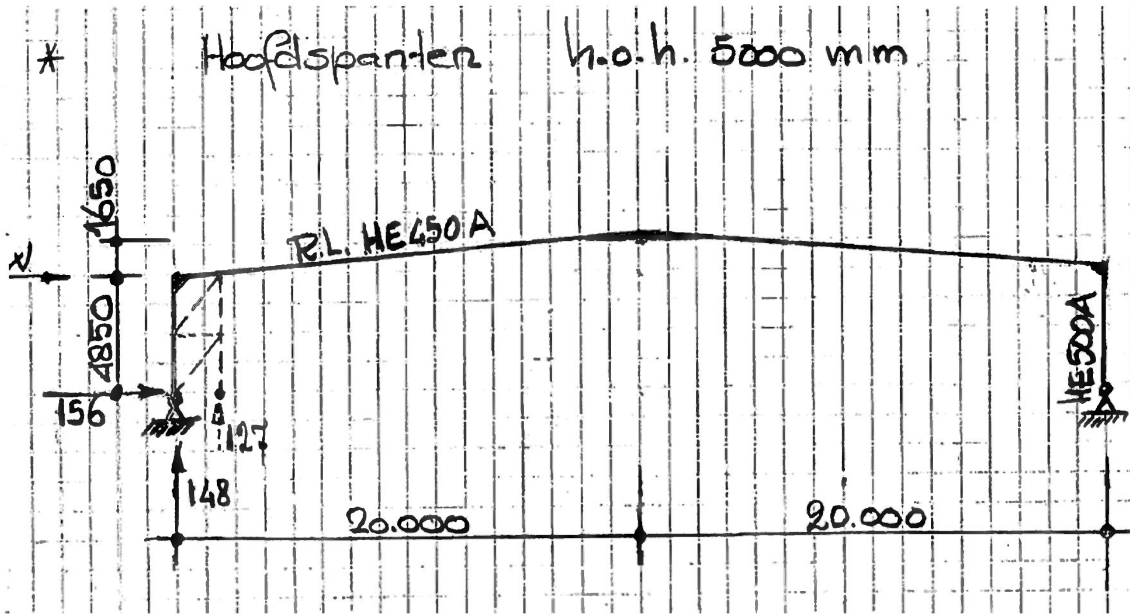 * Hoofdspanten h.o.h. 5000 mm
1650
R.L. HE450A
4850
HE500A
156
127
148
20.000
20.000